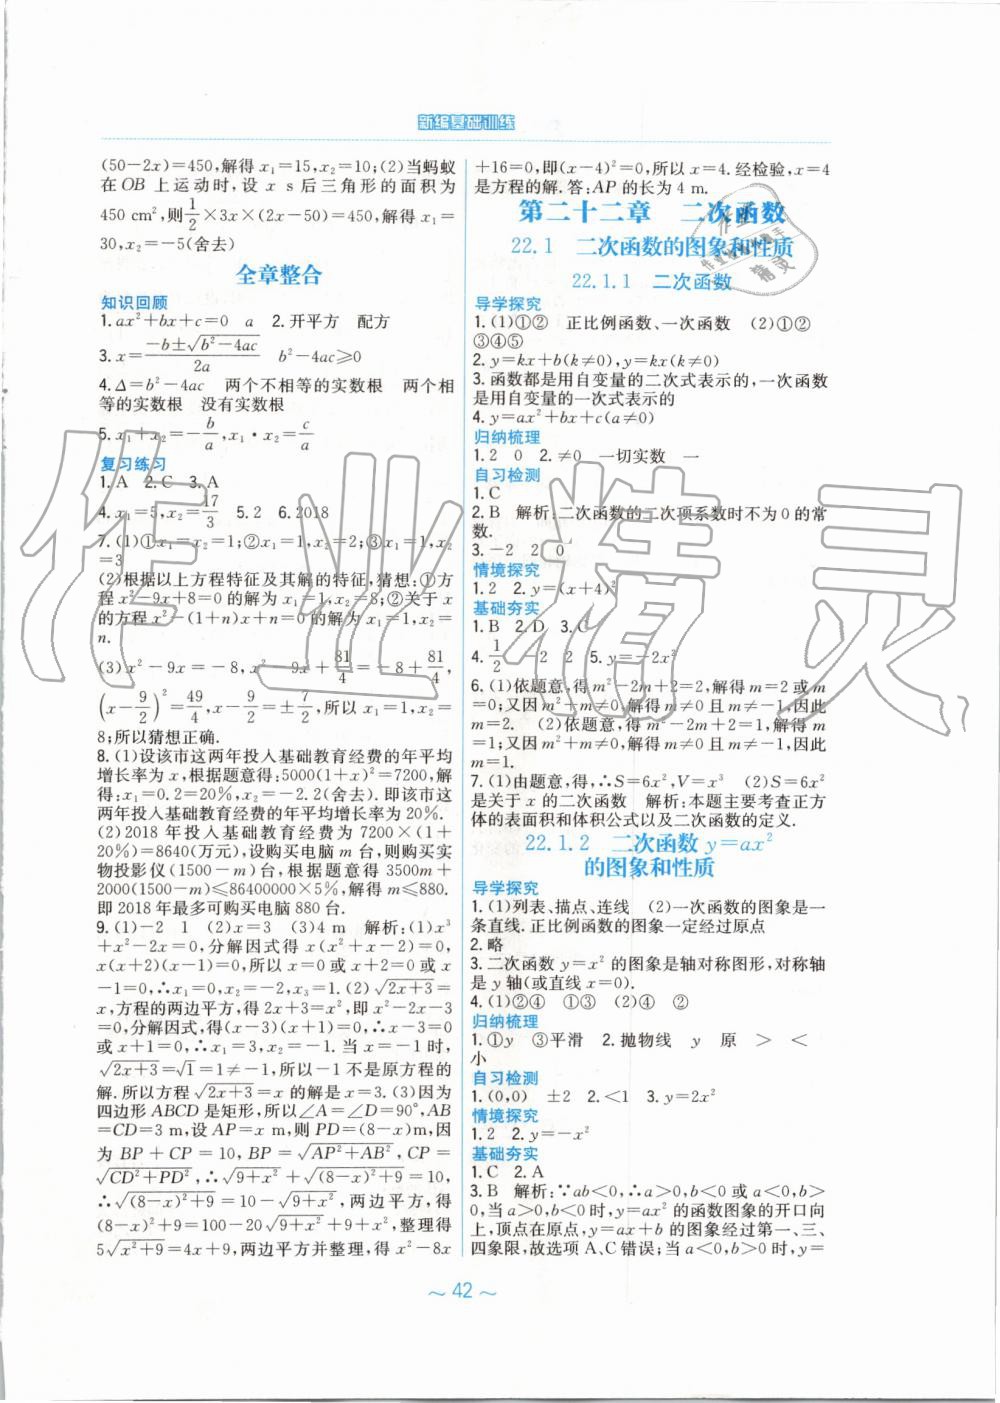 新编基础训练
(50－2x)＝450,解得 x₁＝15,x₂＝10;(2)当蚂蚁
在 OB 上运动时,设 x s后三角形的面积为
450 cm²,则1/2×3x×(2x－50)＝450,解得 x₁＝
30,x₂＝－5(舍去)
全章整合
知识回顾
1.ax²＋bx＋c＝0 a 2.开平方 配方
3.x＝(－b±√(b²－4ac))/2a b²－4ac≥0
4.Δ＝b²－4ac 两个不相等的实数根 两个相
等的实数根 没有实数根
5.x₁＋x₂＝－b/a,x₁·x₂＝c/a
复习练习
1.A 2.C 3.A
4.x₁＝5,x₂＝17/3 5.2 6.2018
7.(1)①x₁＝x₂＝1;②x₁＝1,x₂＝2;③x₁＝1,x₂
＝3
(2)根据以上方程特征及其解的特征,猜想:①方
程 x²－9x＋8＝0 的解为 x₁＝1,x₂＝8;②关于 x
的方程 x²－(1＋n)x＋n＝0 的解为 x₁＝1,x₂＝
n.
(3)x²－9x＝－8,x²－9x＋81/4＝－8＋81/4,
(x－9/2)²＝49/4,x－9/2＝±7/2,所以 x₁＝1,x₂＝
8;所以猜想正确.
8.(1)设该市这两年投入基础教育经费的年平均
增长率为 x,根据题意得:5000(1＋x)²＝7200,解
得:x₁＝0.2＝20%,x₂＝－2.2(舍去).即该市这
两年投入基础教育经费的年平均增长率为 20%.
(2)2018 年投入基础教育经费为 7200×(1＋
20%)＝8640(万元),设购买电脑 m 台,则购买实
物投影仪(1500－m)台,根据题意得 3500m＋
2000(1500－m)≤86400000×5%,解得 m≤880.
即 2018 年最多可购买电脑 880 台.
9.(1)－2 1 (2)x＝3 (3)4 m 解析:(1)x³
＋x²－2x＝0,分解因式得 x(x²＋x－2)＝0,
x(x＋2)(x－1)＝0,所以 x＝0 或 x＋2＝0 或 x
－1＝0,∴x₁＝0,x₂＝－2,x₃＝1.(2)√(2x＋3)＝
x,方程的两边平方,得 2x＋3＝x²,即 x²－2x－3
＝0,分解因式,得(x－3)(x＋1)＝0,∴x－3＝0
或 x＋1＝0,∴x₁＝3,x₂＝－1. 当 x＝－1 时,
√(2x＋3)＝√1＝1≠－1,所以－1 不是原方程的
解.所以方程√(2x＋3)＝x 的解是 x＝3.(3)因为
四边形 ABCD 是矩形,所以∠A＝∠D＝90°,AB
＝CD＝3 m,设 AP＝x m,则 PD＝(8－x)m,因
为 BP＋CP＝10,BP＝√(AP²＋AB²),CP＝
√(CD²＋PD²),∴√(9＋x²)＋√((8－x)²＋9)＝10,
∴√((8－x)²＋9)＝10－√(9＋x²),两边平方,得
(8－x)²＋9＝100－20√(9＋x²)＋9＋x²,整理得
5√(x²＋9)＝4x＋9,两边平方并整理,得 x²－8x
＋16＝0,即(x－4)²＝0,所以 x＝4.经检验,x＝4
是方程的解.答:AP 的长为 4 m.
第二十二章 二次函数
22.1 二次函数的图象和性质
22.1.1 二次函数
导学探究
1.(1)①② 正比例函数、一次函数 (2)①②
③④⑤
2.y＝kx＋b(k≠0),y＝kx(k≠0)
3.函数都是用自变量的二次式表示的,一次函数
是用自变量的一次式表示的
4.y＝ax²＋bx＋c(a≠0)
归纳梳理
1.2 0 2.≠0 一切实数 一
自习检测
1.C
2.B 解析:二次函数的二次项系数时不为 0 的常
数.
3.－2 2 0
情境探究
1.2 2.y＝(x＋4)²
基础夯实
1.B 2.D 3.C
4.1/2 －2 2 5.y＝－2x²
6.(1)依题意,得 m²－2m＋2＝2,解得 m＝2 或 m
＝0;又因 m²＋m≠0,解得 m≠0 且 m≠－1,因此
m＝2. (2)依题意,得 m²－2m＋2＝1,解得 m
＝1;又因 m²＋m≠0,解得 m≠0 且 m≠－1,因此
m＝1.
7.(1)由题意,得,∴S＝6x²,V＝x³ (2)S＝6x²
是关于 x 的二次函数 解析:本题主要考查正方
体的表面积和体积公式以及二次函数的定义.
22.1.2 二次函数 y＝ax²
的图象和性质
导学探究
1.(1)列表、描点、连线 (2)一次函数的图象是一
条直线.正比例函数的图象一定经过原点
2.略
3.二次函数 y＝x² 的图象是轴对称图形,对称轴
是 y 轴(或直线 x＝0).
4.(1)②④ ①③ (2)④ ②
归纳梳理
1.①y ③平滑 2.抛物线 y 原 ＞ ＜
小
自习检测
1.(0,0) ±2 2.＜1 3.y＝2x²
情境探究
1.2 2.y＝－x²
基础夯实
1.C 2.A
3.B 解析:∵ab＜0,∴a＞0,b＜0 或 a＜0,b＞
0,当 a＞0,b＜0 时,y＝ax² 的函数图象的开口向
上,顶点在原点,y＝ax＋b 的图象经过第一、三、
四象限,故选项 A、C 错误;当 a＜0,b＞0 时,y＝
～ 42 ～
作业精灵